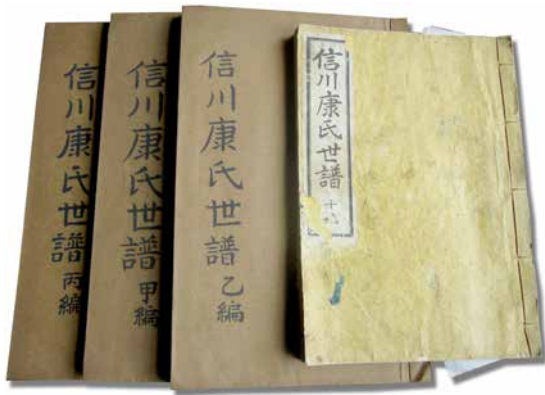 信川康氏世譜 丙編
信川康氏世譜 甲編
信川康氏世譜 乙編
信川康氏世譜 十